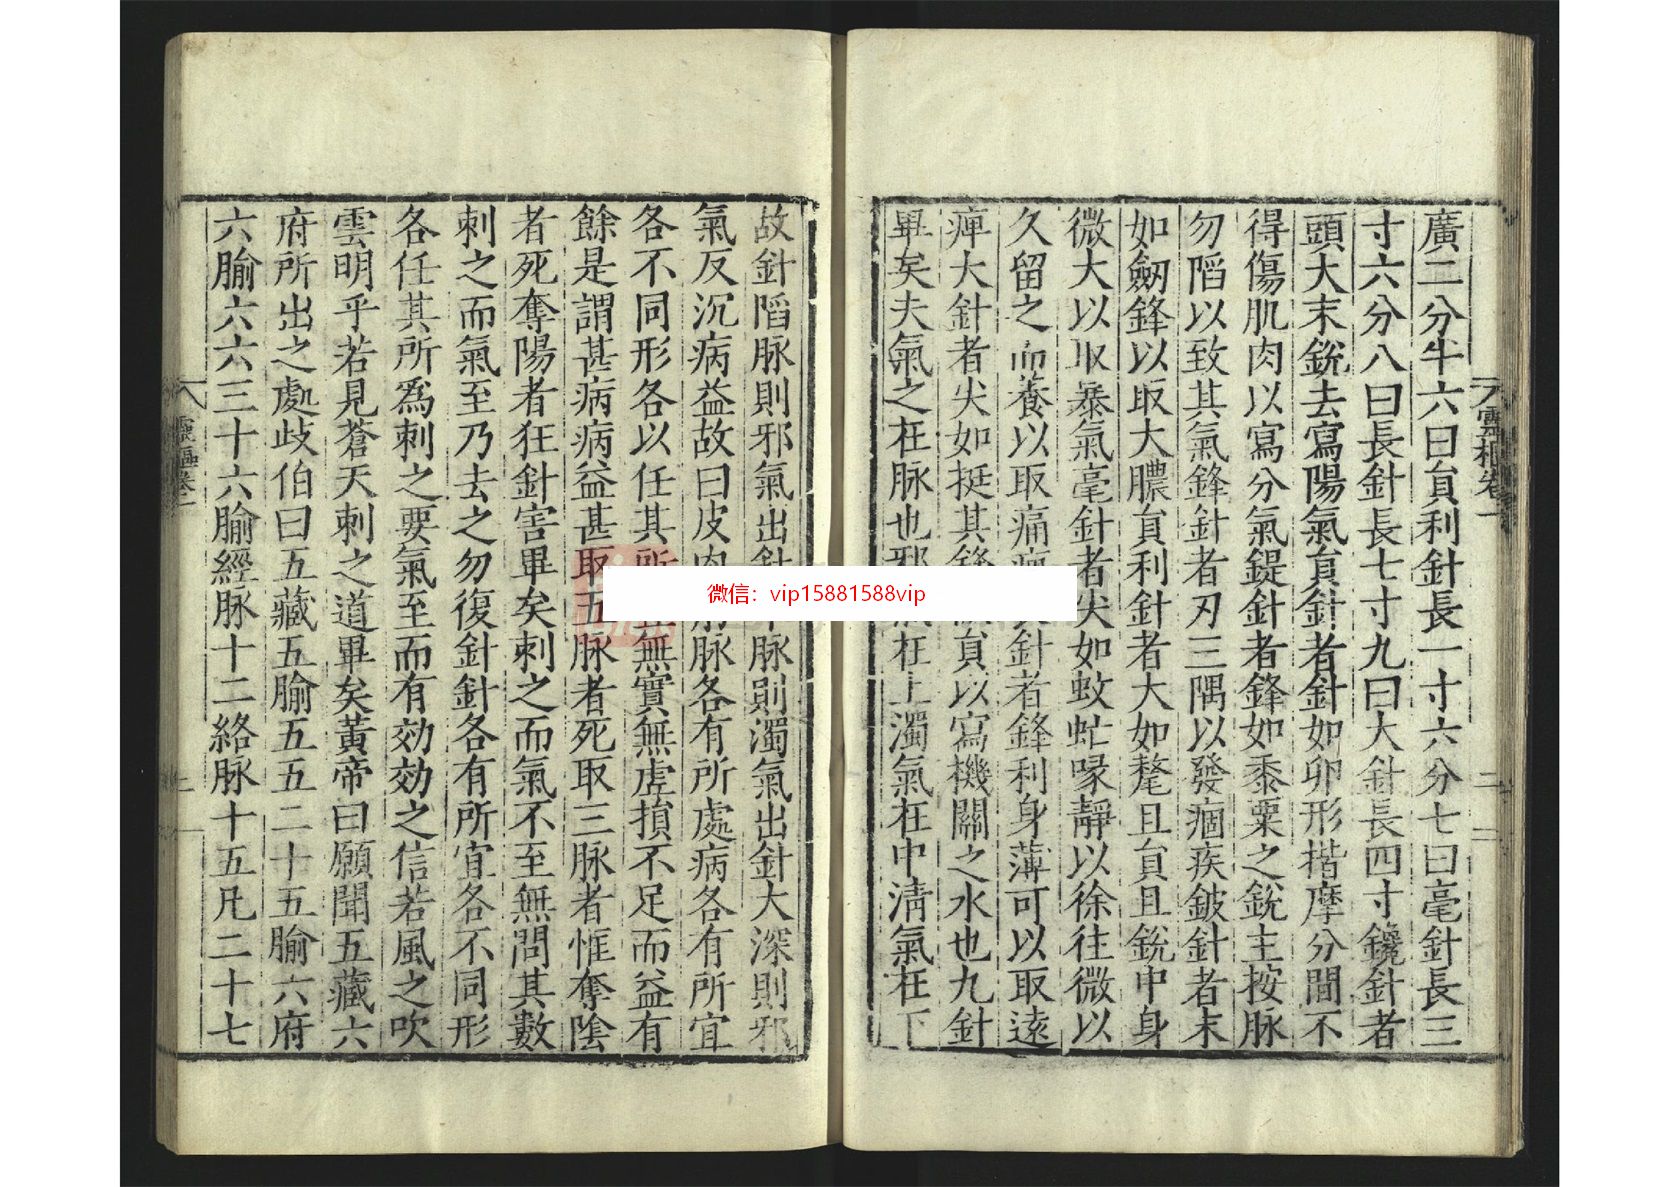 廣二分半六曰貟利針長一寸六分七曰毫針長三
寸六分八曰長針長七寸九曰大針長四寸鑱針者
頭大末銳去寫陽氣貟針者針如卵形揩摩分間不
得傷肌肉以寫分氣鍉針者鋒如黍粟之銳主按脉
勿陷以致其氣鋒針者刃三隅以發痼疾鈹針者末
如劒鋒以取大膿貟利針者大如氂且貟且銳中身
微大以取暴氣毫針者尖如蚊虻喙靜以徐往微以
久留之而養以取痛痹 針者鋒利身薄可以取遠
痺大針者尖如挺其鋒 貟以寫機關之水也九針
畢矣夫氣之在脉也邪 在上濁氣在中清氣在下
故針陷脉則邪氣出針 脉則濁氣出針大深則邪
氣反沉病益故曰皮肉 脉各有所處病各有所宜
各不同形各以任其所 無實無虛損不足而益有
餘是謂甚病病益甚取五脉者死取三脉者恇奪陰
者死奪陽者狂針害畢矣刺之而氣不至無問其數
刺之而氣至乃去之勿復針針各有所宜各不同形
各任其所爲刺之要氣至而有効効之信若風之吹
雲明乎若見蒼天刺之道畢矣黃帝曰願聞五藏六
府所出之處歧伯曰五藏五腧五五二十五腧六府
六腧六六三十六腧經脉十二絡脉十五凡二十七
靈樞卷一
二
靈樞卷一
微信：vip15881588vip